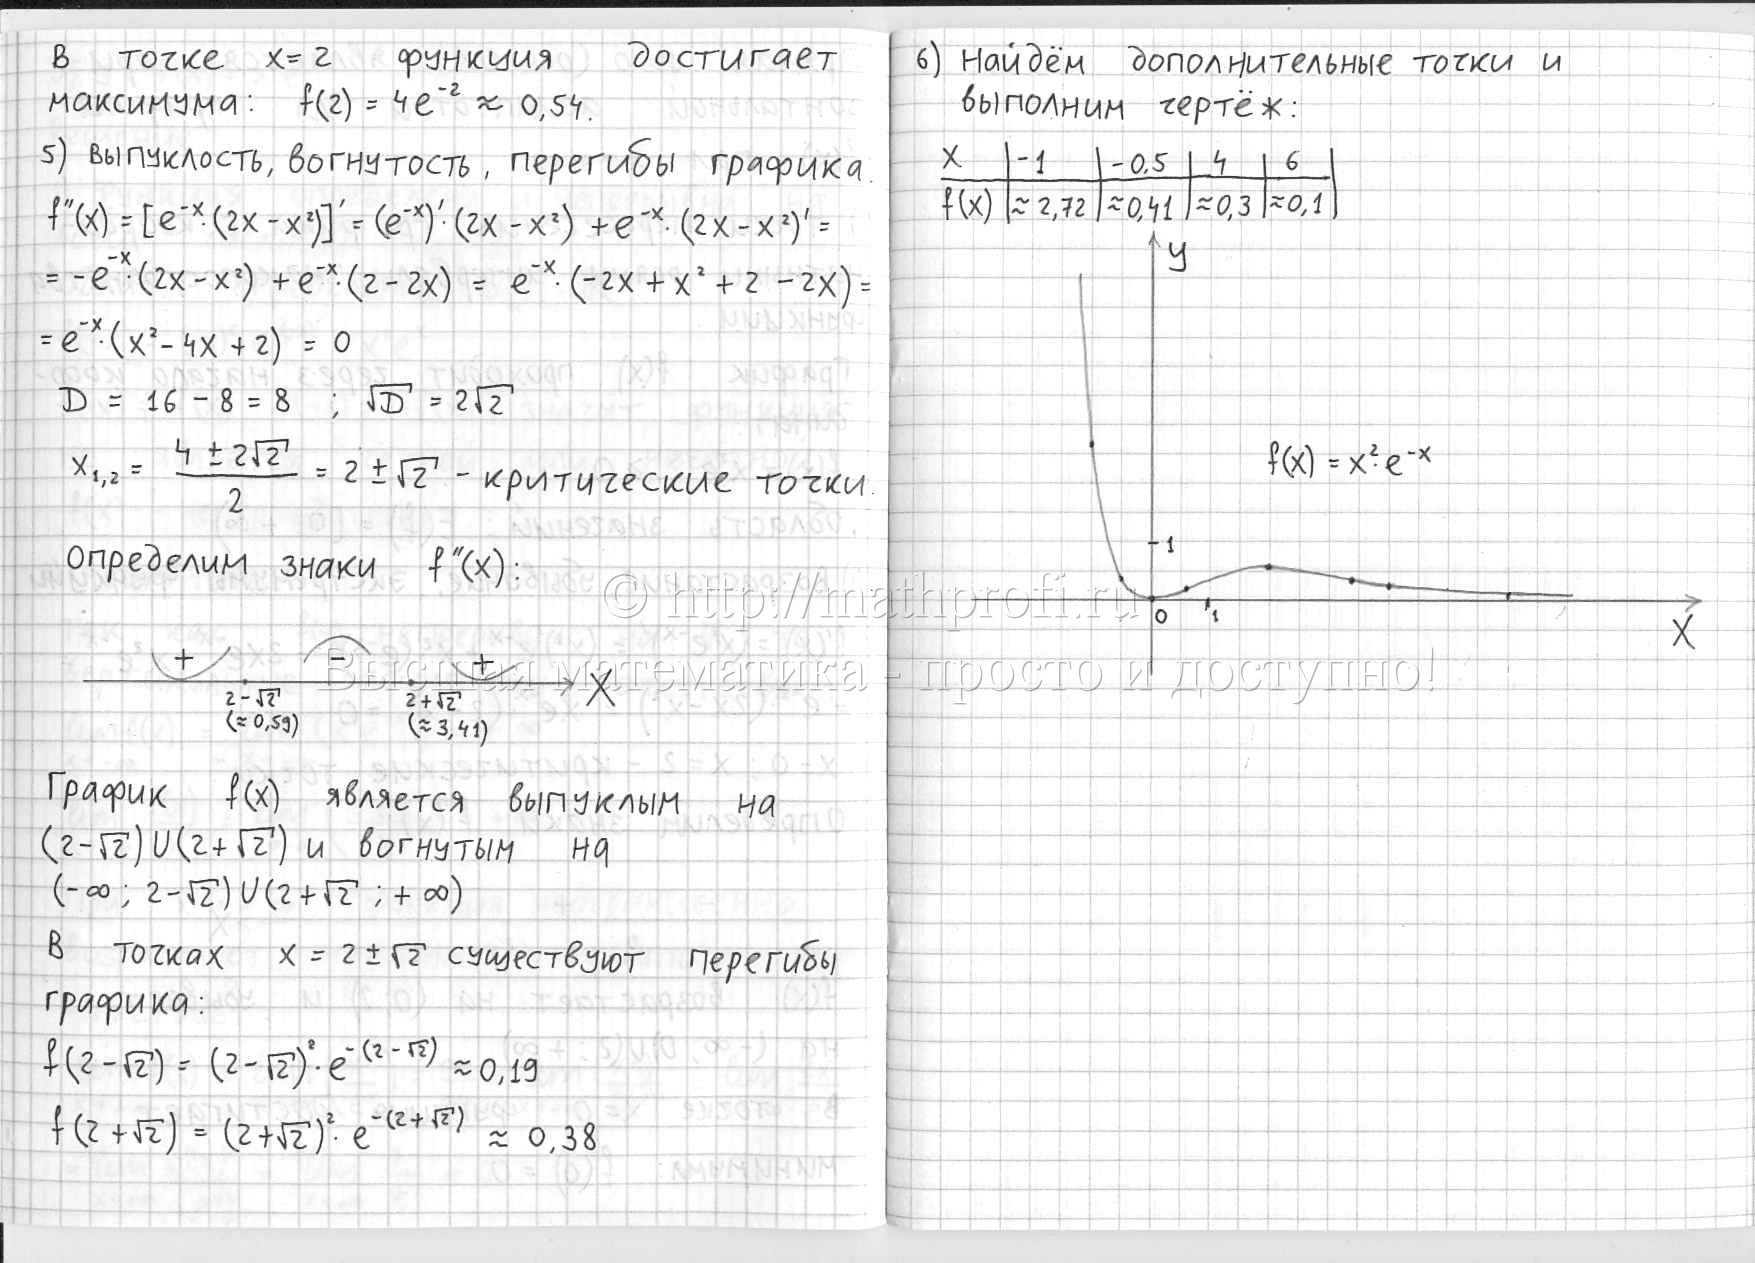 В точке x = 2 функция достигает
максимума: f(2) = 4e⁻² ≈ 0,54.
5) Выпуклость, вогнутость, перегибы графика.
f''(x) = [e⁻ˣ·(2x – x²)]' = (e⁻ˣ)'·(2x – x²) + e⁻ˣ·(2x – x²)' =
= –e⁻ˣ·(2x – x²) + e⁻ˣ·(2 – 2x) = e⁻ˣ·(–2x + x² + 2 – 2x) =
= e⁻ˣ·(x² – 4x + 2) = 0
D = 16 – 8 = 8 ; √D = 2√2
x₁,₂ = (4 ± 2√2)/2 = 2 ± √2 – критические точки.
Определим знаки f''(x):
+ – + X
2 – √2 2 + √2
(≈ 0,59) (≈ 3,41)
График f(x) является выпуклым на
(2 – √2) U (2 + √2) и вогнутым на
(–∞ ; 2 – √2) U (2 + √2 ; + ∞)
В точках x = 2 ± √2 существуют перегибы
графика:
f(2 – √2) = (2 – √2)²·e^–(2 – √2) ≈ 0,19
f(2 + √2) = (2 + √2)²·e^–(2 + √2) ≈ 0,38
6) Найдём дополнительные точки и
выполним чертёж:
x | –1 | –0,5 | 4 | 6
f(x) | ≈ 2,72 | ≈ 0,41 | ≈ 0,3 | ≈ 0,1
y
f(x) = x²·e⁻ˣ
1
0 1
X
© http://mathprofi.ru
Высшая математика - просто и доступно!